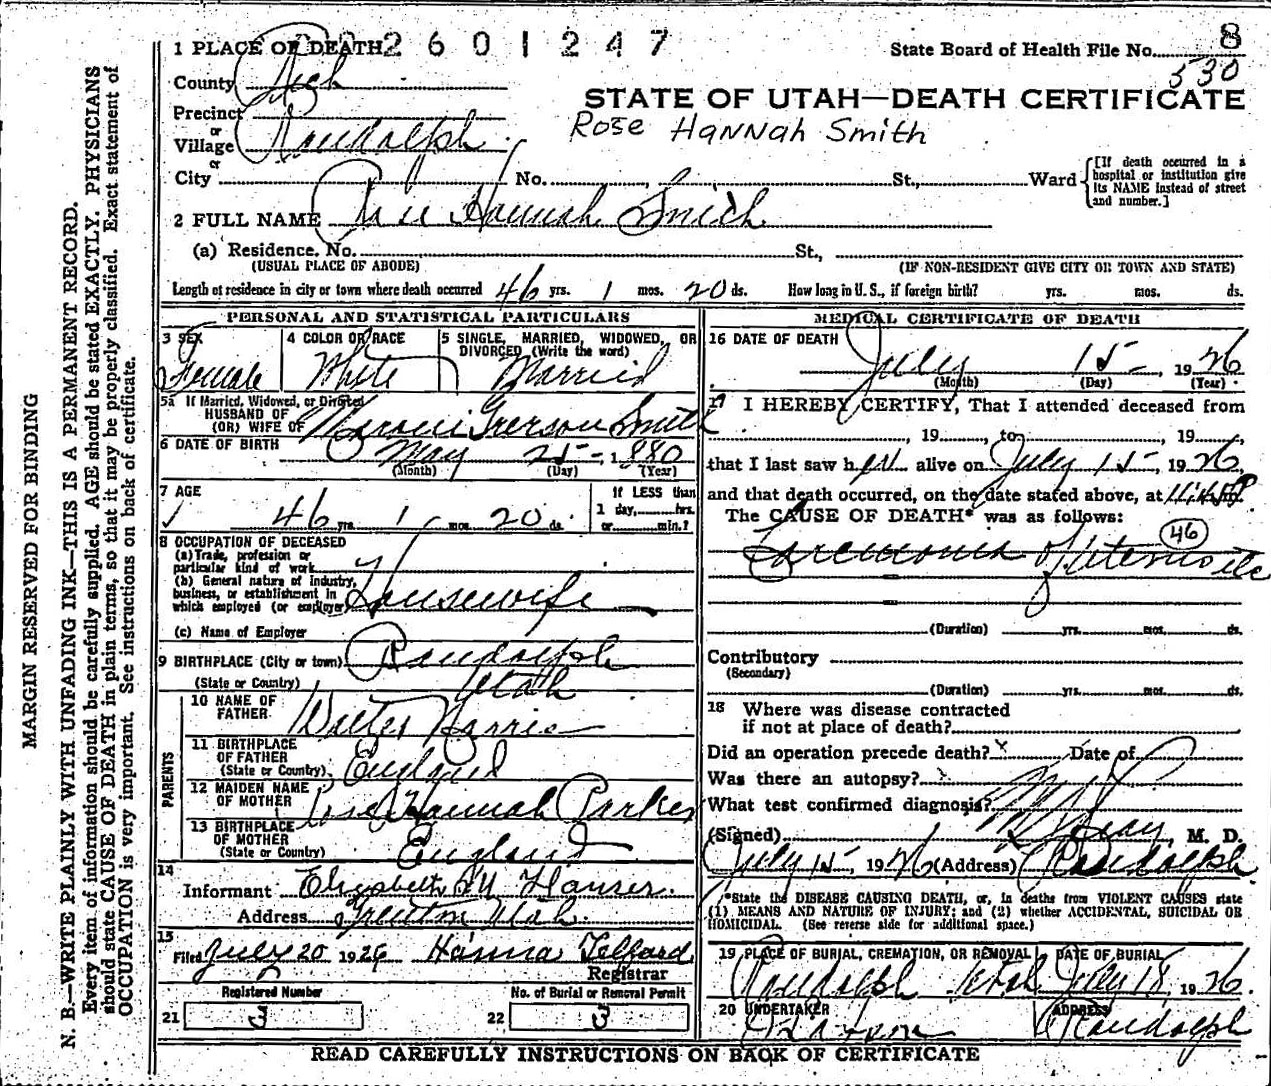 1 PLACE OF DEATH 2601247
State Board of Health File No. 8
530
County Rich
STATE OF UTAH—DEATH CERTIFICATE
Precinct
or
Village Randolph
Rose Hannah Smith
or
City No. St., Ward
[If death occurred in a hospital or institution give its NAME instead of street and number.]
2 FULL NAME Rose Hannah Smith
(a) Residence. No. St.,
(USUAL PLACE OF ABODE) (IF NON-RESIDENT GIVE CITY OR TOWN AND STATE)
Length of residence in city or town where death occurred 46 yrs. 1 mos. 20 ds. How long in U. S., if foreign birth? yrs. mos. ds.
PERSONAL AND STATISTICAL PARTICULARS
3 SEX
Female
4 COLOR OR RACE
White
5 SINGLE, MARRIED, WIDOWED, OR
DIVORCED (Write the word)
Married
5a If Married, Widowed, or Divorced
HUSBAND OF
(OR) WIFE OF Maroni Smith
6 DATE OF BIRTH May 25, 1880
(Month) (Day) (Year)
7 AGE
46 yrs. 1 mos. 20 ds.
If LESS than
1 day, hrs.
or min.?
8 OCCUPATION OF DECEASED
(a) Trade, profession or
particular kind of work
(b) General nature of industry,
business, or establishment in
which employed (or employer) Housewife
(c) Name of Employer
9 BIRTHPLACE (City or town) Randolph
(State or Country) Utah
PARENTS
10 NAME OF
FATHER Walter Harris
11 BIRTHPLACE
OF FATHER
(State or Country) England
12 MAIDEN NAME
OF MOTHER Rose Hannah Parker
13 BIRTHPLACE
OF MOTHER
(State or Country) England
14
Informant Elizabeth Hanser
Address Trenton Utah
15
Filed July 20 1926 Hanna Telford
Registrar
Registered Number
21 3
No. of Burial or Removal Permit
22 3
MEDICAL CERTIFICATE OF DEATH
16 DATE OF DEATH
July 15 1926
(Month) (Day) (Year)
17 I HEREBY CERTIFY, That I attended deceased from
, 19 , to , 19 ,
that I last saw her alive on July 15, 1926,
and that death occurred, on the date stated above, at m.
The CAUSE OF DEATH* was as follows:
46
of
(Duration) yrs. mos. ds.
Contributory
(Secondary)
(Duration) yrs. mos. ds.
18 Where was disease contracted
if not at place of death?
Did an operation precede death? x Date of
Was there an autopsy? x
What test confirmed diagnosis?
(Signed) Reay, M. D.
July 15, 1926 (Address) Randolph
*State the DISEASE CAUSING DEATH, or, in deaths from VIOLENT CAUSES state
(1) MEANS AND NATURE OF INJURY; and (2) whether ACCIDENTAL, SUICIDAL OR
HOMICIDAL. (See reverse side for additional space.)
19 PLACE OF BURIAL, CREMATION, OR REMOVAL
Randolph Utah
DATE OF BURIAL
July 18, 1926.
20 UNDERTAKER
ADDRESS
Randolph
READ CAREFULLY INSTRUCTIONS ON BACK OF CERTIFICATE
MARGIN RESERVED FOR BINDING
N. B.—WRITE PLAINLY WITH UNFADING INK—THIS IS A PERMANENT RECORD.
Every item of information should be carefully supplied. AGE should be stated EXACTLY. PHYSICIANS
should state CAUSE OF DEATH in plain terms, so that it may be properly classified. Exact statement of
OCCUPATION is very important. See instructions on back of certificate.